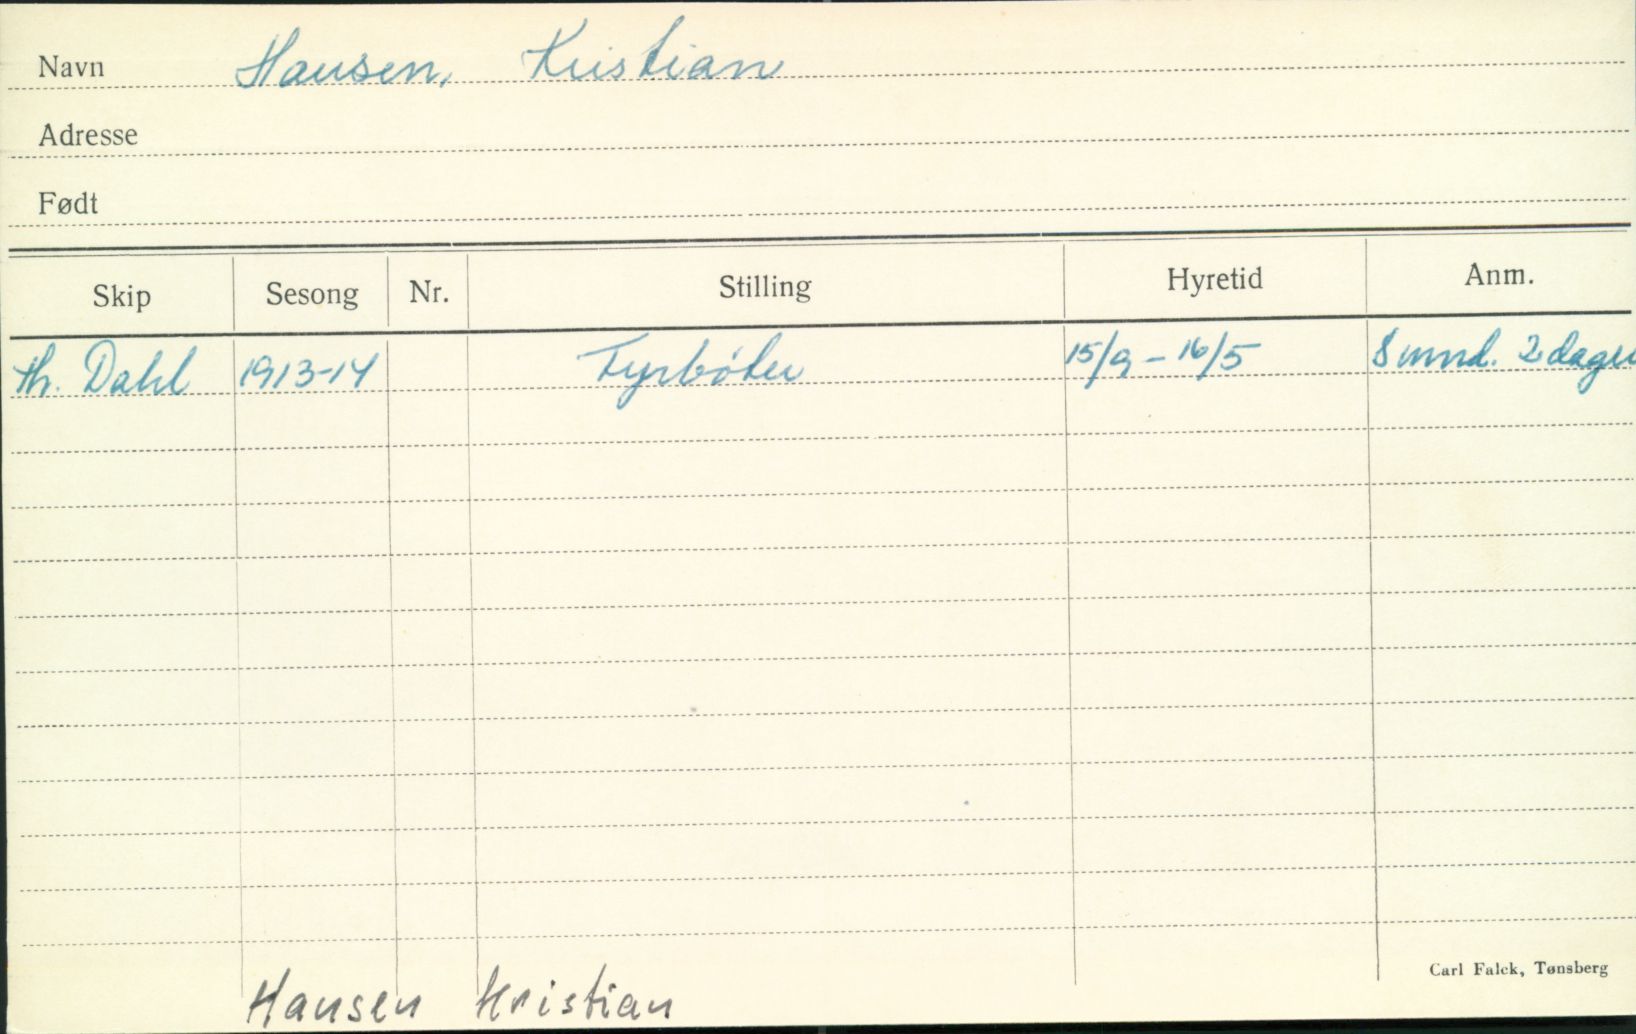 Navn Hansen, Kristian
Adresse
Født
Skip Sesong Nr. Stilling Hyretid Anm.
Th. Dahl 1913-14 Fyrbøter 15/9 - 16/5 8 mnd. 2 dager
Carl Falck, Tønsberg
Hansen Kristian